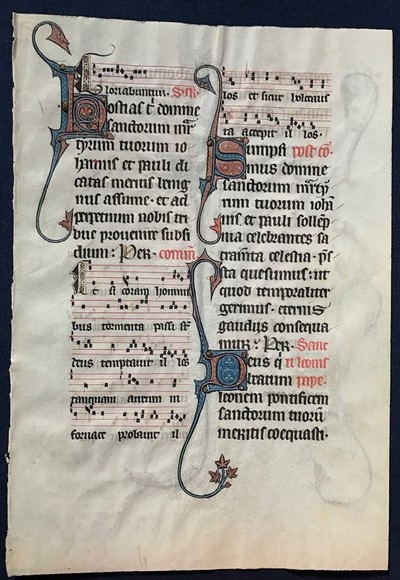 Gloriabuntur. Secr.
Hostias t domine
sanctorum mar
tyrum tuorum io
hannis et pauli di
catas meritis benig
nus assume. et ad
perpetuum nobis tri
bue provenire subsi
dium: Per. comm
Et si coram homini
bus tormenta passi st
deus temptavit il los
tanquam aurum in
fornace probavit il
los et sicut holocaus
ta accepit il los.
Sumpsi post co.
mus domine
sanctorum mrty
rum tuorum ioh
nis et pauli sollep
nia celebrantes sa
cramta celestia. ps
ta quesumus: ut
quod temporaliter
gerimus. eternis
gaudiis consequa
mur: Per. Sanc
Deus q ti leonis
beatum pape.
leonem pontificem
sanctorum tuorū
meritis coequasti.